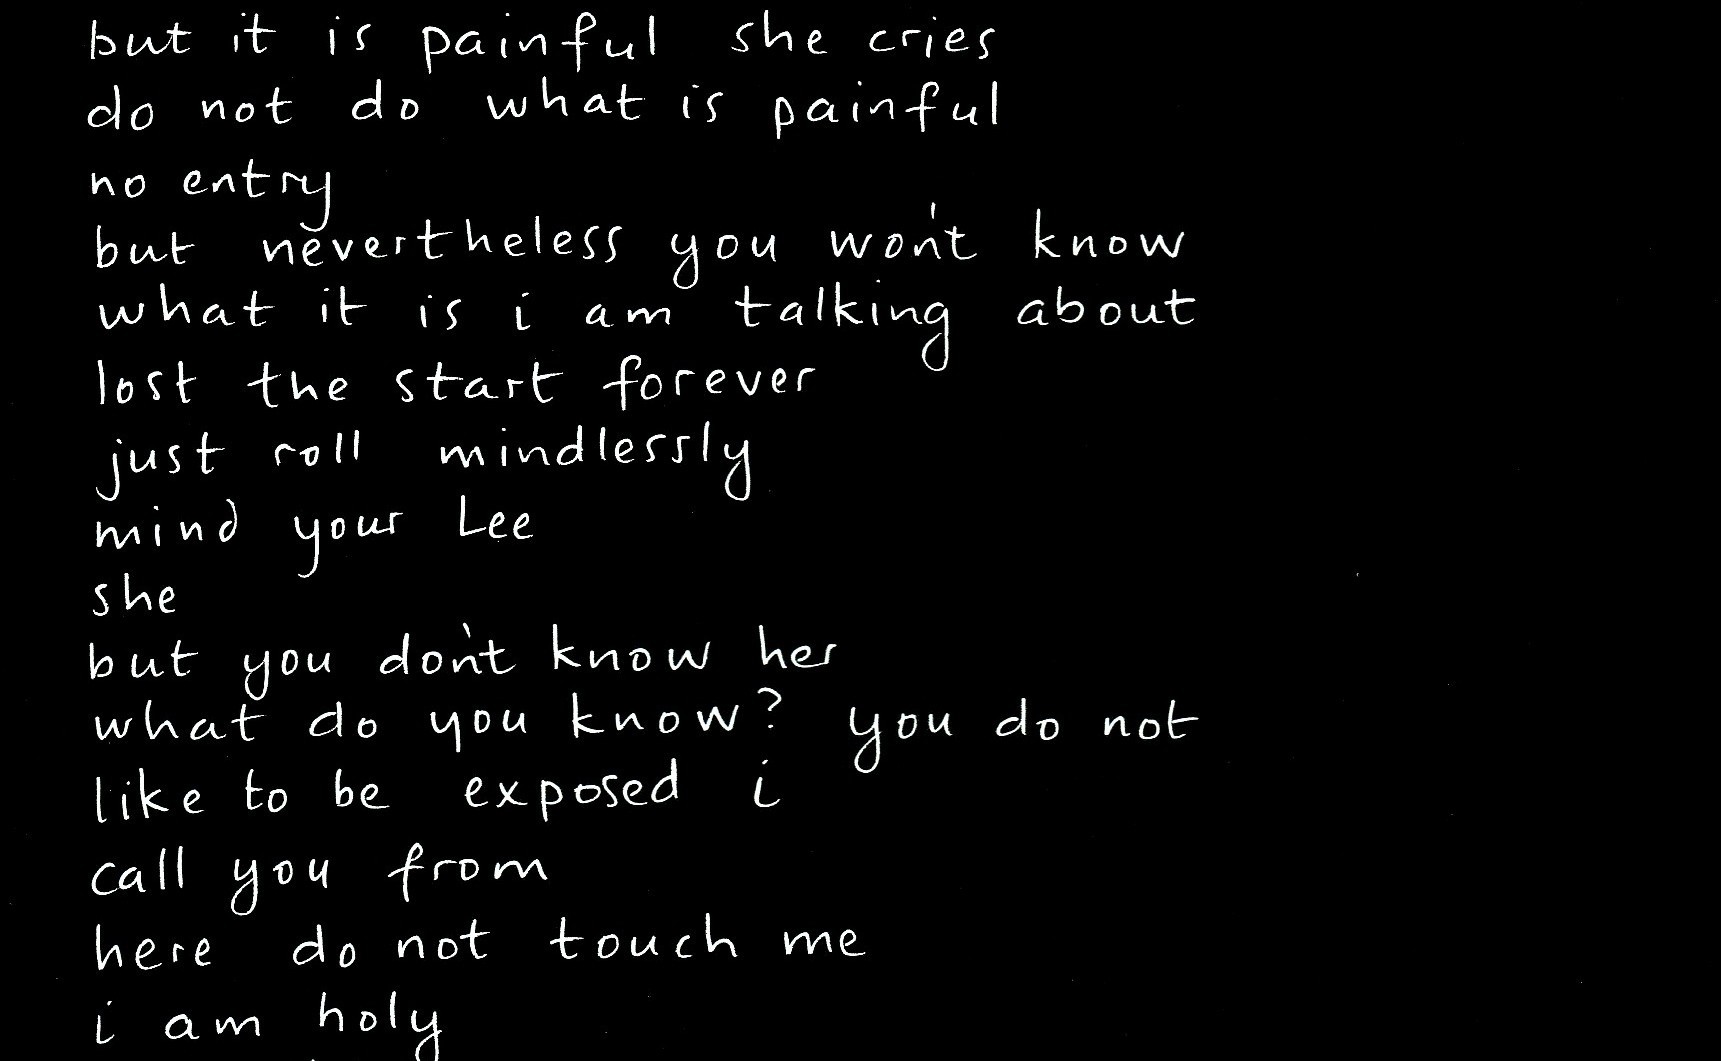 but it is painful she cries
do not do what is painful
no entry
but nevertheless you won't know
what it is i am talking about
lost the start forever
just roll mindlessly
mind your Lee
she
but you don't know her
what do you know? you do not
like to be exposed i
call you from
here do not touch me
i am holy